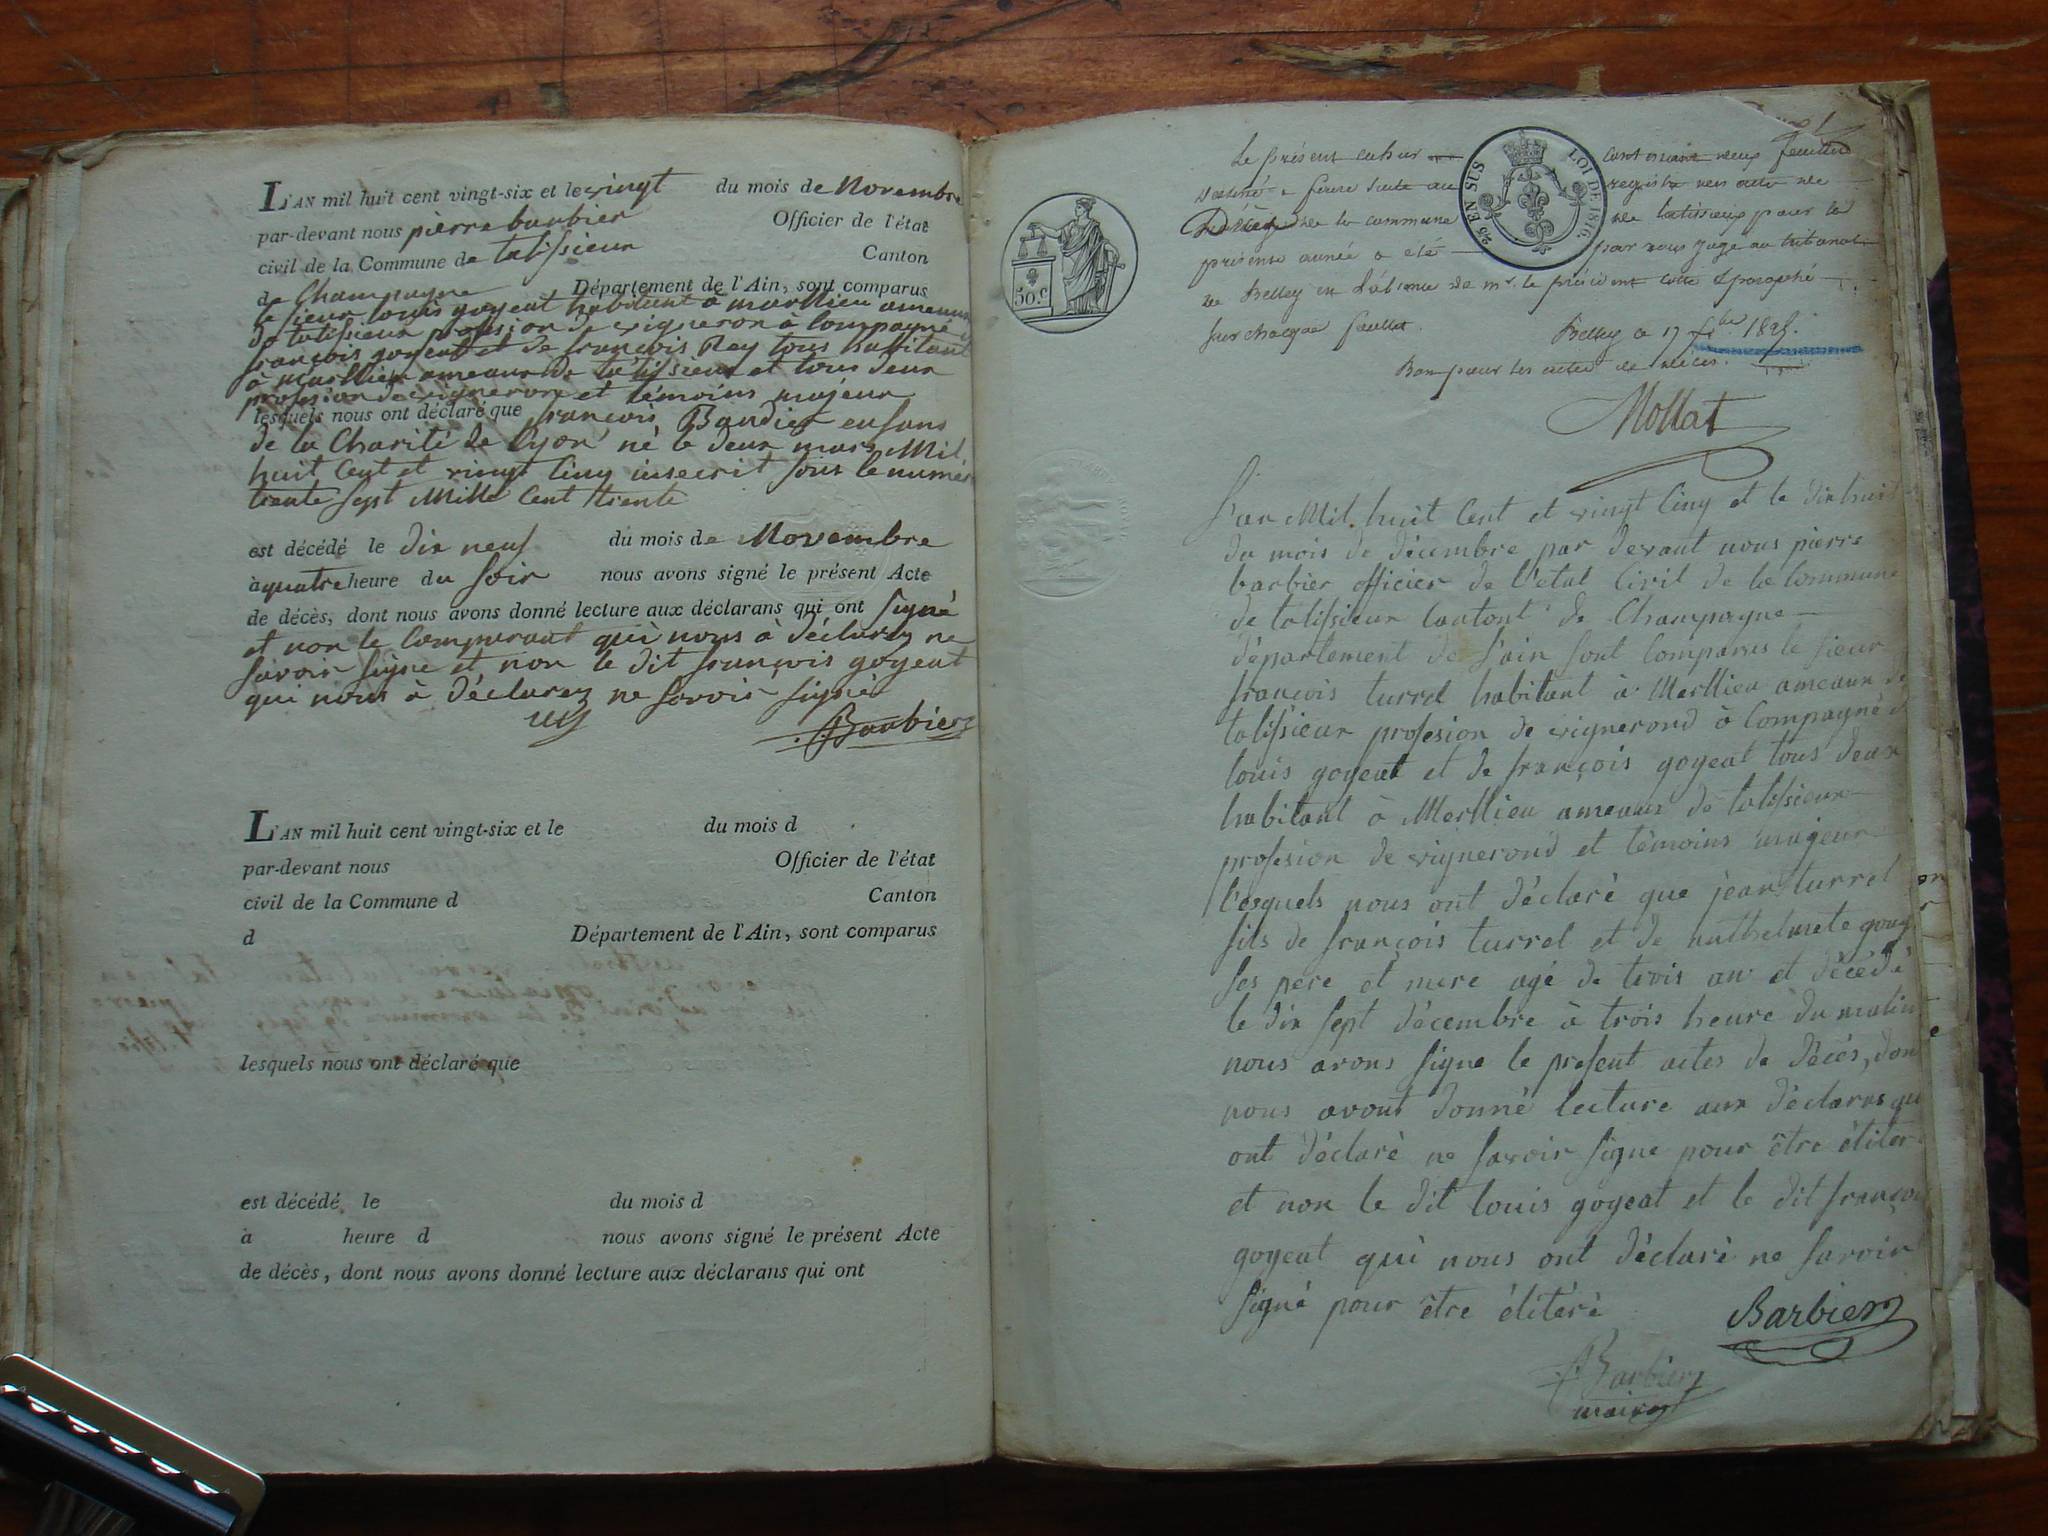 L'AN mil huit cent vingt-six et le vingt du mois de Novembre
par-devant nous pierre barbier Officier de l'état
civil de la Commune de talissieux Canton
de Champagne Département de l'Ain, sont comparus
le sieur louis goyent habitant à marllieu ameaux
de talissieux profesion de vigneron à compagné
françois goyent et de françois Rey tous habitant
à Marllieu ameaux de talissieux et tous deux
profesion de vignerons et témoins majeur
lesquels nous ont déclaré que françois Baudier enfans
de la Charité de lyon né le deux mars Mil
huit Cent et vingt Cinq inscrit sous le numér
trente sept Mille Cent trente
est décédé le dix neuf du mois de Novembre
à quatre heure du soir nous avons signé le présent Acte
de décès, dont nous avons donné lecture aux déclarans qui ont signé
et non le Comparant qui nous à déclarez ne
savoir signe et non le dit françois goyent
qui nous à déclarez ne savoir signé
Barbier
L'AN mil huit cent vingt-six et le du mois d
par-devant nous Officier de l'état
civil de la Commune d Canton
d Département de l'Ain, sont comparus
lesquels nous ont déclaré que
est décédé le du mois d
à heure d nous avons signé le présent Acte
de décès, dont nous avons donné lecture aux déclarans qui ont
50.c
25 EN SUS LOI DE 1816.
Le présent cahier contenant deux feuillets
destiné à faire suite au registre des actes de
Décès de la commune de talissieux pour la
présente année a été par nous juge au tribunal
de Belley en l'absence de mr. le président cotté & paraphé
sur chaque feuillet.
Belley le 17 1825.
Bon pour les actes de décès.
Mollat
L'an Mil huit Cent et vingt Cinq et le dix huit
du mois de décembre par devant nous pierre
barbier officier de l'état Civil de la Commune
de talissieux Cantont de Champagne
département de l'ain sont Comparus le sieur
françois turrel habitant à Merllieu ameaux de
talissieux profesion de vignerond à Compagné d
louis goyent et de françois goyeat tous deux
habitant à Merllieu ameaux de talissieux
profesion de vignerond et témoins majeur
lesquels nous ont déclaré que jean turrel
fils de françois turrel et de
ses pere et mere agé de trois an et décédé
le dix sept décembre à trois heure du matin
nous avons signe le presént actes de décés, don
nous avont donné lecture aux déclarns qu
ont déclaré ne savoir signe pour être éliter
et non le dit louis goyeat et le dit françoi
goyeat qui nous ont déclaré ne savoir
signé pour être élitéré
Barbier
Barbier
maire